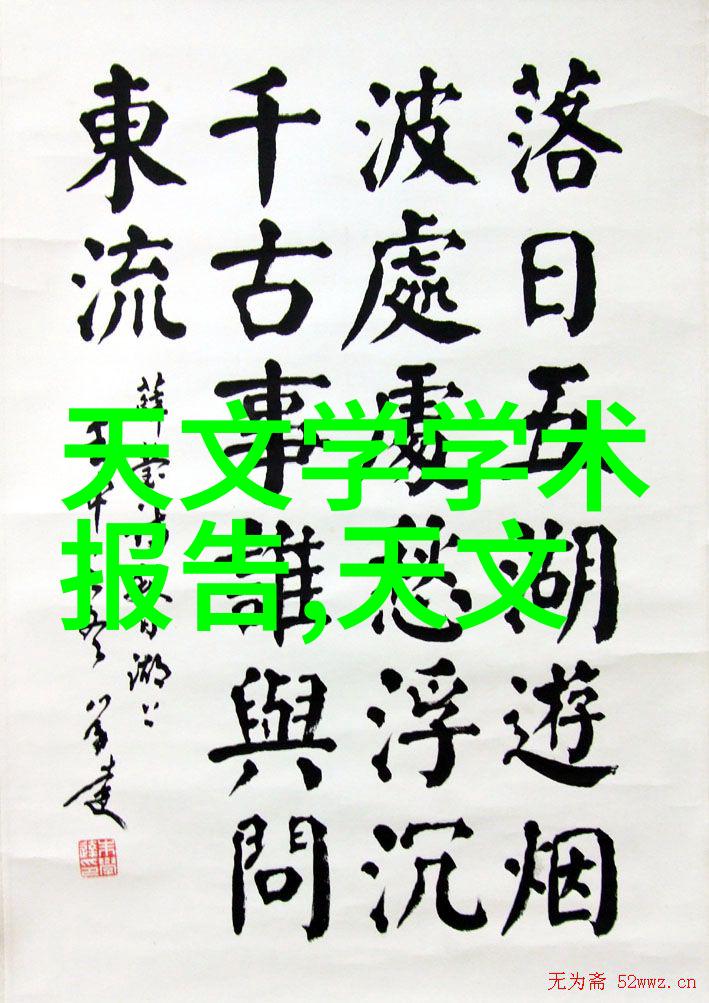 落日五湖遊烟
波處處愁浮沉
千古事誰與問
東流
天文学学术
报告,天文
无为斋 52wwz.cn